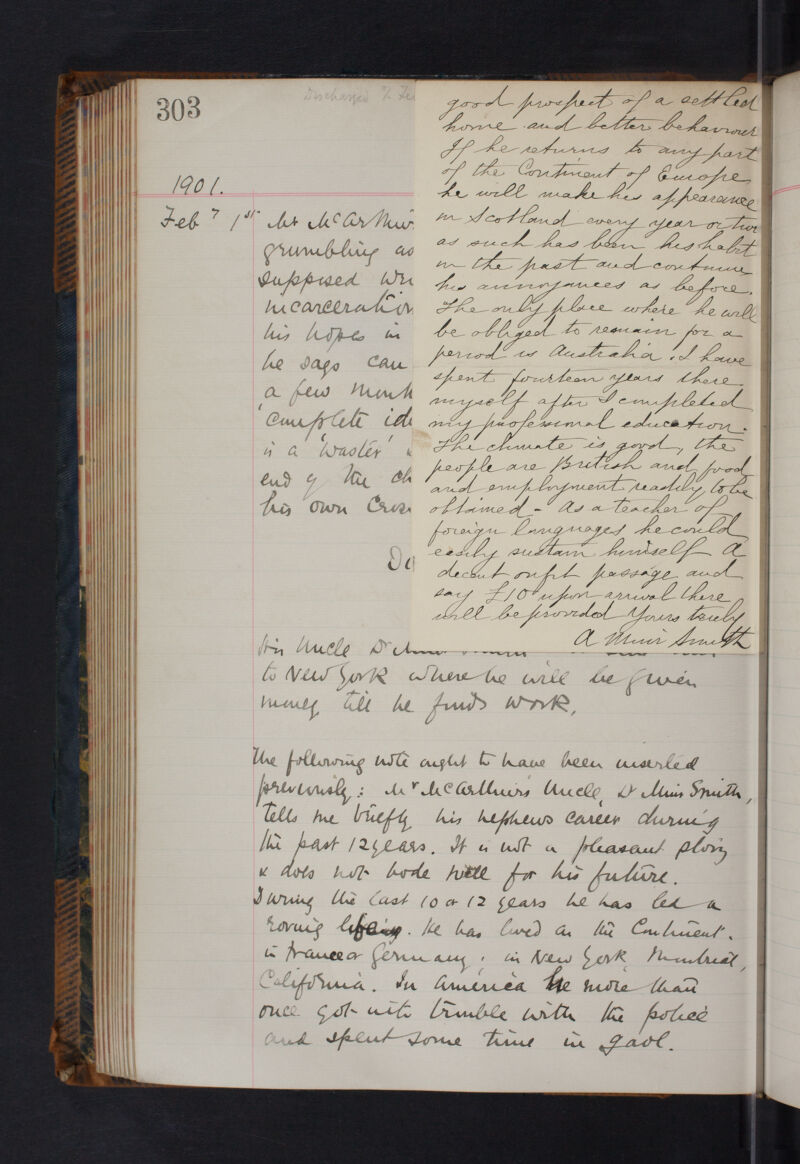 303
Discharged
1901.
Feby 1st Mr McArthur
grumbling as
supposed
incarceration
his hopes in
he says can
a few month
'complete
is a 'waster'
end of the ch
his own
His Uncle Dr
to New York where he will be given
money till he finds work.
The following note ought to have been inserted
previously: Mr McArthur's Uncle, Dr Muir Smith,
tells me briefly his nephews career during
the past 12 years. It is not a pleasant story
& does not bode well for his future.
During the last 10 or 12 years he has led a
roving life. He has lived on the Continent.
in France or Germany; in New York Montreal,
California. In America he more than
once got into trouble with the police
and spent some time in gaol.
good prospect of a settled
home and better behaviour
If he returns to any part
of the Continent of Europe
he will make his appearance
in Scotland every year or two
as such has been his habit
in the past and continue
his annoyances as before.
The only place where he will
be obliged to remain for a
period is Australia. I have
spent fourteen years there
myself after I completed
my professional education.
The climate is good, the
people are British and food
and employment readily to be
obtained - As a teacher of
foreign languages he could
easily sustain himself A
decent outfit passage and
say £10 upon arrival there
will be provided Yours truly
A Muir Smith